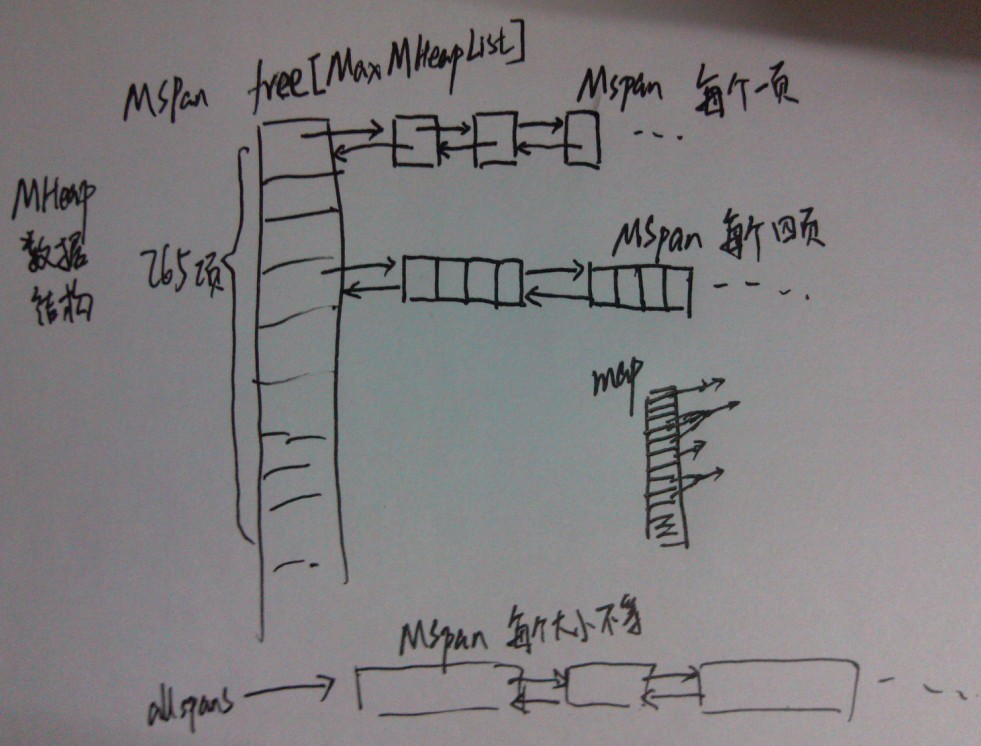 MSpan free[MaxMHeapList]
MSpan 每个一页
MHeap
数据
结构
265项
MSpan 每个四页
map
MSpan 每个大小不等
allspans